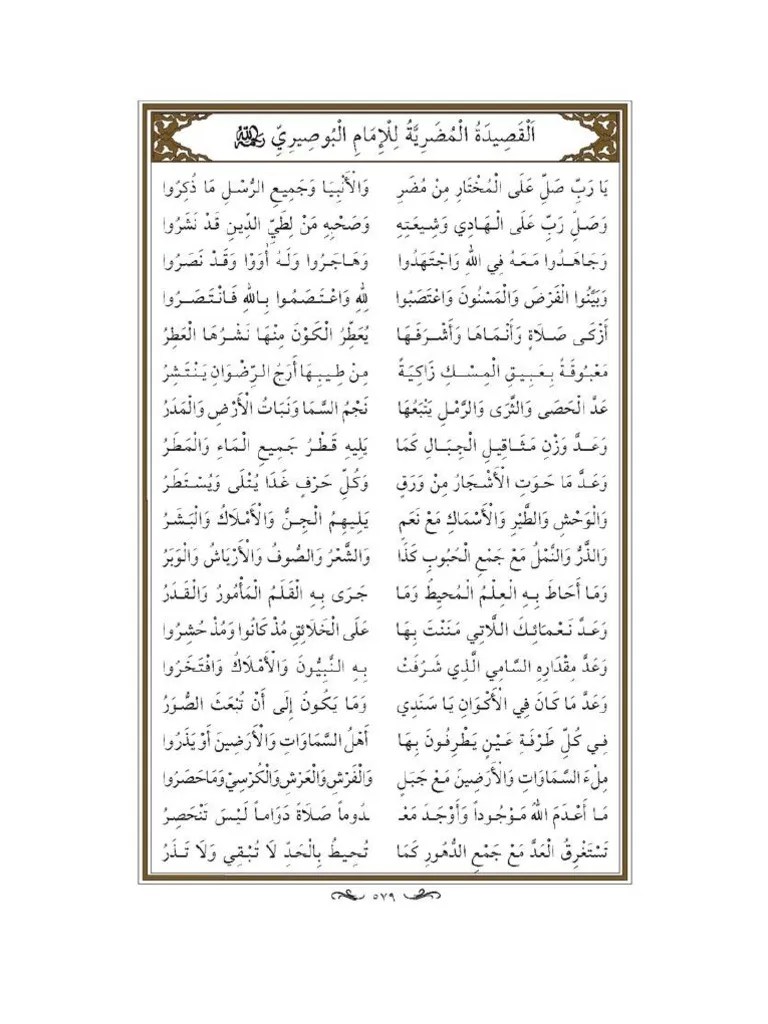 اَلْقَصِيدَةُ الْمُضَرِيَّةُ لِلْإِمَامِ الْبُوصِيرِيِّ رحمه الله
يَا رَبِّ صَلِّ عَلَى الْمُخْتَارِ مِنْ مُضَرِ وَالْأَنْبِيَا وَجَمِيعِ الرُّسْلِ مَا ذُكِرُوا
وَصَلِّ رَبِّ عَلَى الْهَادِي وَشِيعَتِهِ وَصَحْبِهِ مَنْ لِطَيِّ الدِّينِ قَدْ نَشَرُوا
وَجَاهَدُوا مَعَهُ فِي اللهِ وَاجْتَهَدُوا وَهَاجَرُوا وَلَهُ أَوَوْا وَقَدْ نَصَرُوا
وَبَيَّنُوا الْفَرْضَ وَالْمَسْنُونَ وَاعْتَصَبُوا لِلهِ وَاعْتَصَمُوا بِاللهِ فَانْتَصَرُوا
أَزْكَى صَلَاةٍ وَأَنْمَاهَا وَأَشْرَفَهَا يُعَطِّرُ الْكَوْنَ مِنْهَا نَشْرُهَا الْعَطِرُ
مَعْبُوقَةً بِعَبِيقِ الْمِسْكِ زَاكِيَةً مِنْ طِيبِهَا أَرَجُ الرِّضْوَانِ يَنْتَشِرُ
عَدَّ الْحَصَى وَالثَّرَى وَالرَّمْلِ يَتْبَعُهَا نَجْمُ السَّمَا وَنَبَاتُ الْأَرْضِ وَالْمَدَرُ
وَعَدَّ وَزْنِ مَثَاقِيلِ الْجِبَالِ كَمَا يَلِيهِ قَطْرُ جَمِيعِ الْمَاءِ وَالْمَطَرُ
وَعَدَّ مَا حَوَتِ الْأَشْجَارُ مِنْ وَرَقٍ وَكُلِّ حَرْفٍ غَدَا يُتْلَى وَيُسْتَطَرُ
وَالْوَحْشِ وَالطَّيْرِ وَالْأَسْمَاكِ مَعْ نَعَمٍ يَلِيهِمُ الْجِنُّ وَالْأَمْلَاكُ وَالْبَشَرُ
وَالذَّرُّ وَالنَّمْلُ مَعْ جَمْعِ الْحُبُوبِ كَذَا وَالشَّعْرُ وَالصُّوفُ وَالْأَرْيَاشُ وَالْوَبَرُ
وَمَا أَحَاطَ بِهِ الْعِلْمُ الْمُحِيطُ وَمَا جَرَى بِهِ الْقَلَمُ الْمَأْمُورُ وَالْقَدَرُ
وَعَدَّ نَعْمَائِكَ اللَّاتِي مَنَنْتَ بِهَا عَلَى الْخَلَائِقِ مُذْ كَانُوا وَمُذْ حُشِرُوا
وَعَدَّ مِقْدَارِهِ السَّامِي الَّذِي شَرُفَتْ بِهِ النَّبِيُّونَ وَالْأَمْلَاكُ وَافْتَخَرُوا
وَعَدَّ مَا كَانَ فِي الْأَكْوَانِ يَا سَنَدِي وَمَا يَكُونُ إِلَى أَنْ تُبْعَثَ الصُّوَرُ
فِي كُلِّ طَرْفَةِ عَيْنٍ يَطْرِفُونَ بِهَا أَهْلُ السَّمَاوَاتِ وَالْأَرَضِينَ أَوْ يَذَرُوا
مِلْءَ السَّمَاوَاتِ وَالْأَرَضِينَ مَعْ جَبَلٍ وَالْفَرْشِ وَالْعَرْشِ وَالْكُرْسِيْ وَمَا حَصَرُوا
مَا أَعْدَمَ اللهُ مَوْجُوداً وَأَوْجَدَ مَعْـ ـدُوماً صَلَاةً دَوَاماً لَيْسَ تَنْحَصِرُ
تَسْتَغْرِقُ الْعَدَّ مَعْ جَمْعِ الدُّهُورِ كَمَا تُحِيطُ بِالْحَدِّ لَا تُبْقِي وَلَا تَذَرُ
٥٧٩